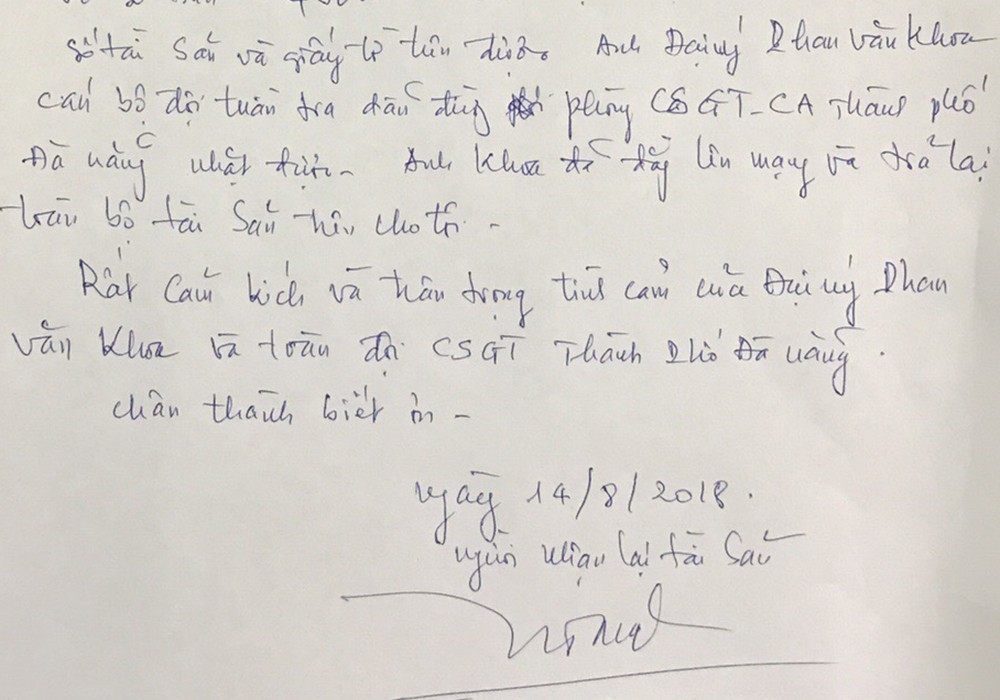 số tài sản và giấy tờ trên được. Anh Đại úy Phan Văn Khoa
cán bộ đội tuần tra dẫn đường phòng CSGT-CA Thành phố
Đà nẵng nhặt được - Anh Khoa đã đăng lên mạng và trả lại
toàn bộ tài sản trên cho tôi -
Rất cảm kích và trân trọng tình cảm của Đại úy Phan
Văn Khoa và toàn đội CSGT Thành Phố Đà nẵng.
chân thành biết ơn -
ngày 14/8/2018.
người nhận lại tài sản